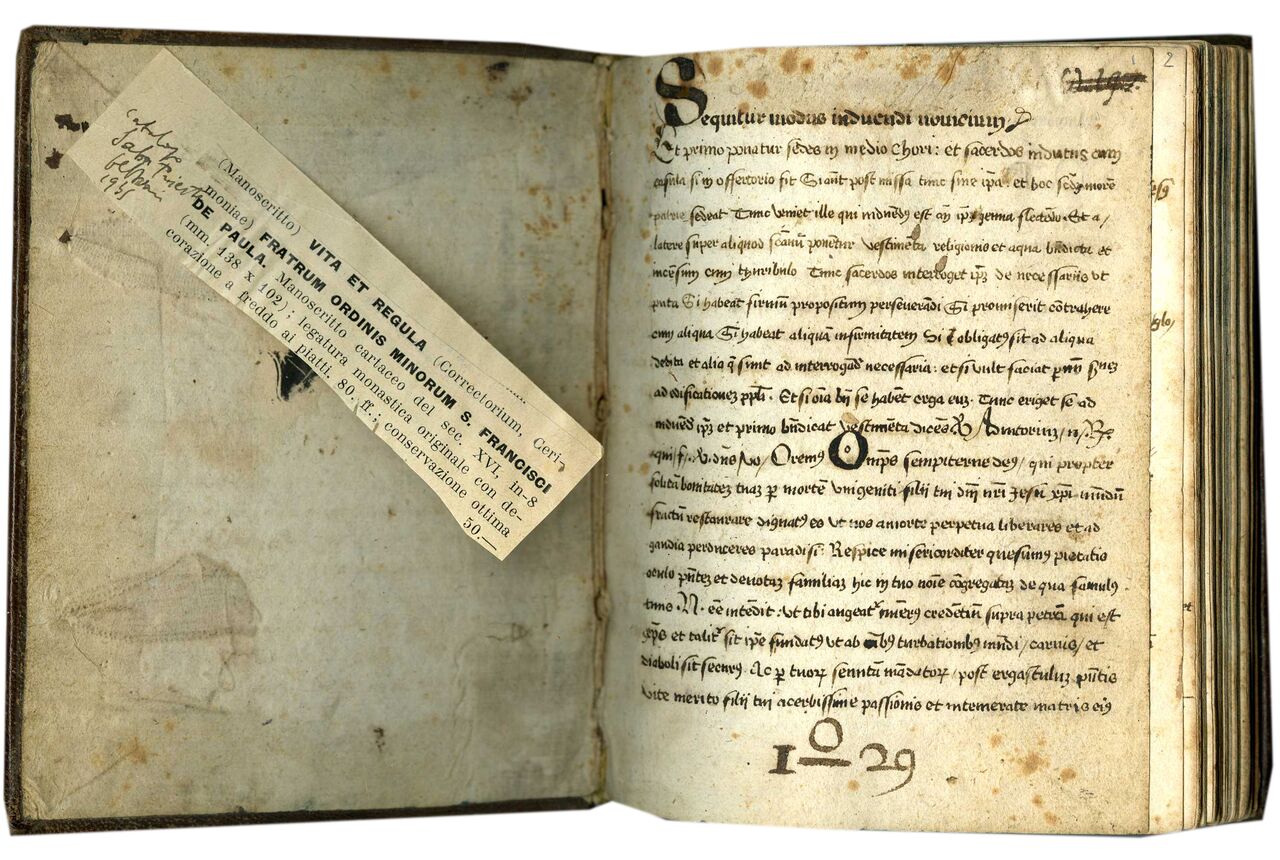 catalogo
1935
(Manoscritto) VITA ET REGULA (Correctorium, Ceri-
moniae) FRATRUM ORDINIS MINORUM S. FRANCISCI
DE PAULA. Manoscritto cartaceo del sec. XVI, in-8
(mm. 138 x 102); legatura monastica originale con de-
corazione a freddo ai piatti. 80. ff.; conservazione ottima
50.—
2
Sequitur modus induendi nouicium
Et primo ponatur sedes in medio Chori: et sacerdos indutus cum
casula si in offertorio fit Si aut post missa tunc sine ipa. et hoc morem
patrie sedeat Tunc veniet ille qui est an genua flectendo. Et a /
latere super aliquod scanu ponetur vestimeta religionis et aqua bndicta et
incesum cum thuribulo Tunc sacerdos interroget ipz de necessariis vt
puta Si habeat firmum propositum perseuerandi Si promiserit cotrahere
cum aliqua Si habeat aliqua infirmitatem Si obligatus sit ad aliqua
debita et alia q sunt ad interrogad necessaria: et si vult faciat
ad edificationez ppli. Et si oia bn se habet erga euz. Tunc eriget se ad
ipz et primo bndicat vestimeta dices Adiutoriuz /
Oremus Omps sempiterne deus / qui propter
solita bonitatez tuaz p morte vnigeniti filii tui dni nri Jesu xpi mudum
fractu restaurare dignatus es vt nos a morte perpetua liberares et ad
gaudia perduceres paradisi: Respice misericorditer quesumus pietatis
oculo pntez et deuotaz familiaz hic in tuo noie cogregataz de qua famulus
tuus .N. ee intedit: vt tibi augeatr credentiu supra petra qui est
xps et talitr sit ipe fundatus vt ab turbationibus mudi / carnis / et
diaboli sit securus. Ac p tuorz madatorz / post ergastuluz pntis
vite merito filii tui acerbissime passionis et intemerate matris eius
1 0 29